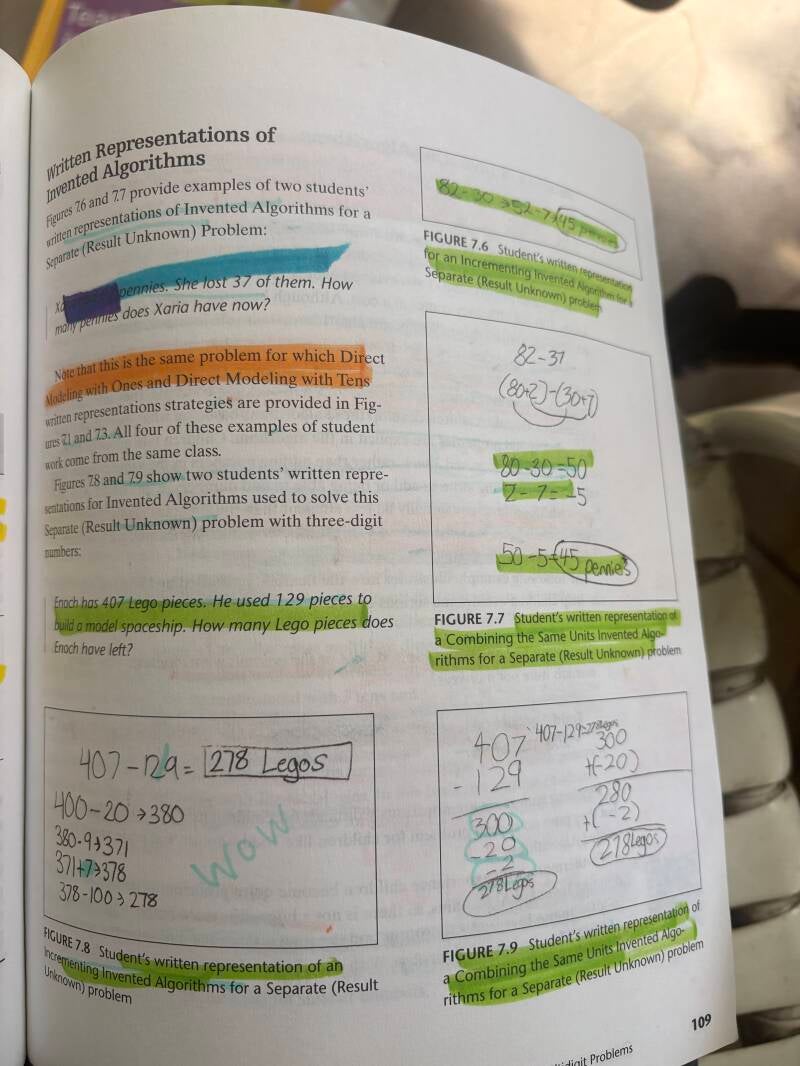 Written Representations of
Invented Algorithms
Figures 7.6 and 7.7 provide examples of two students'
written representations of Invented Algorithms for a
Separate (Result Unknown) Problem:
pennies. She lost 37 of them. How
many pennies does Xaria have now?
Note that this is the same problem for which Direct
Modeling with Ones and Direct Modeling with Tens
written representations strategies are provided in Fig-
ures 7.1 and 7.3. All four of these examples of student
work come from the same class.
Figures 7.8 and 7.9 show two students' written repre-
sentations for Invented Algorithms used to solve this
Separate (Result Unknown) problem with three-digit
numbers:
Enoch has 407 Lego pieces. He used 129 pieces to
build a model spaceship. How many Lego pieces does
Enoch have left?
82-30→52-7→45 pennies
FIGURE 7.6 Student's written representation
for an Incrementing Invented Algorithm for a
Separate (Result Unknown) problem
82-37
(80+2)-(30+7)
80-30=50
2-7=-5
50-5=45 pennies
FIGURE 7.7 Student's written representation of
a Combining the Same Units Invented Algo-
rithms for a Separate (Result Unknown) problem
407-129= 278 Legos
400-20→380
380-9→371
371+7→378
378-100→278
wow
FIGURE 7.8 Student's written representation of an
Incrementing Invented Algorithms for a Separate (Result
Unknown) problem
407
-129
300
-20
-2
278 Legos
407-129=278 Legos
300
+(-20)
280
+(-2)
278 Legos
FIGURE 7.9 Student's written representation of
a Combining the Same Units Invented Algo-
rithms for a Separate (Result Unknown) problem
109
digit Problems